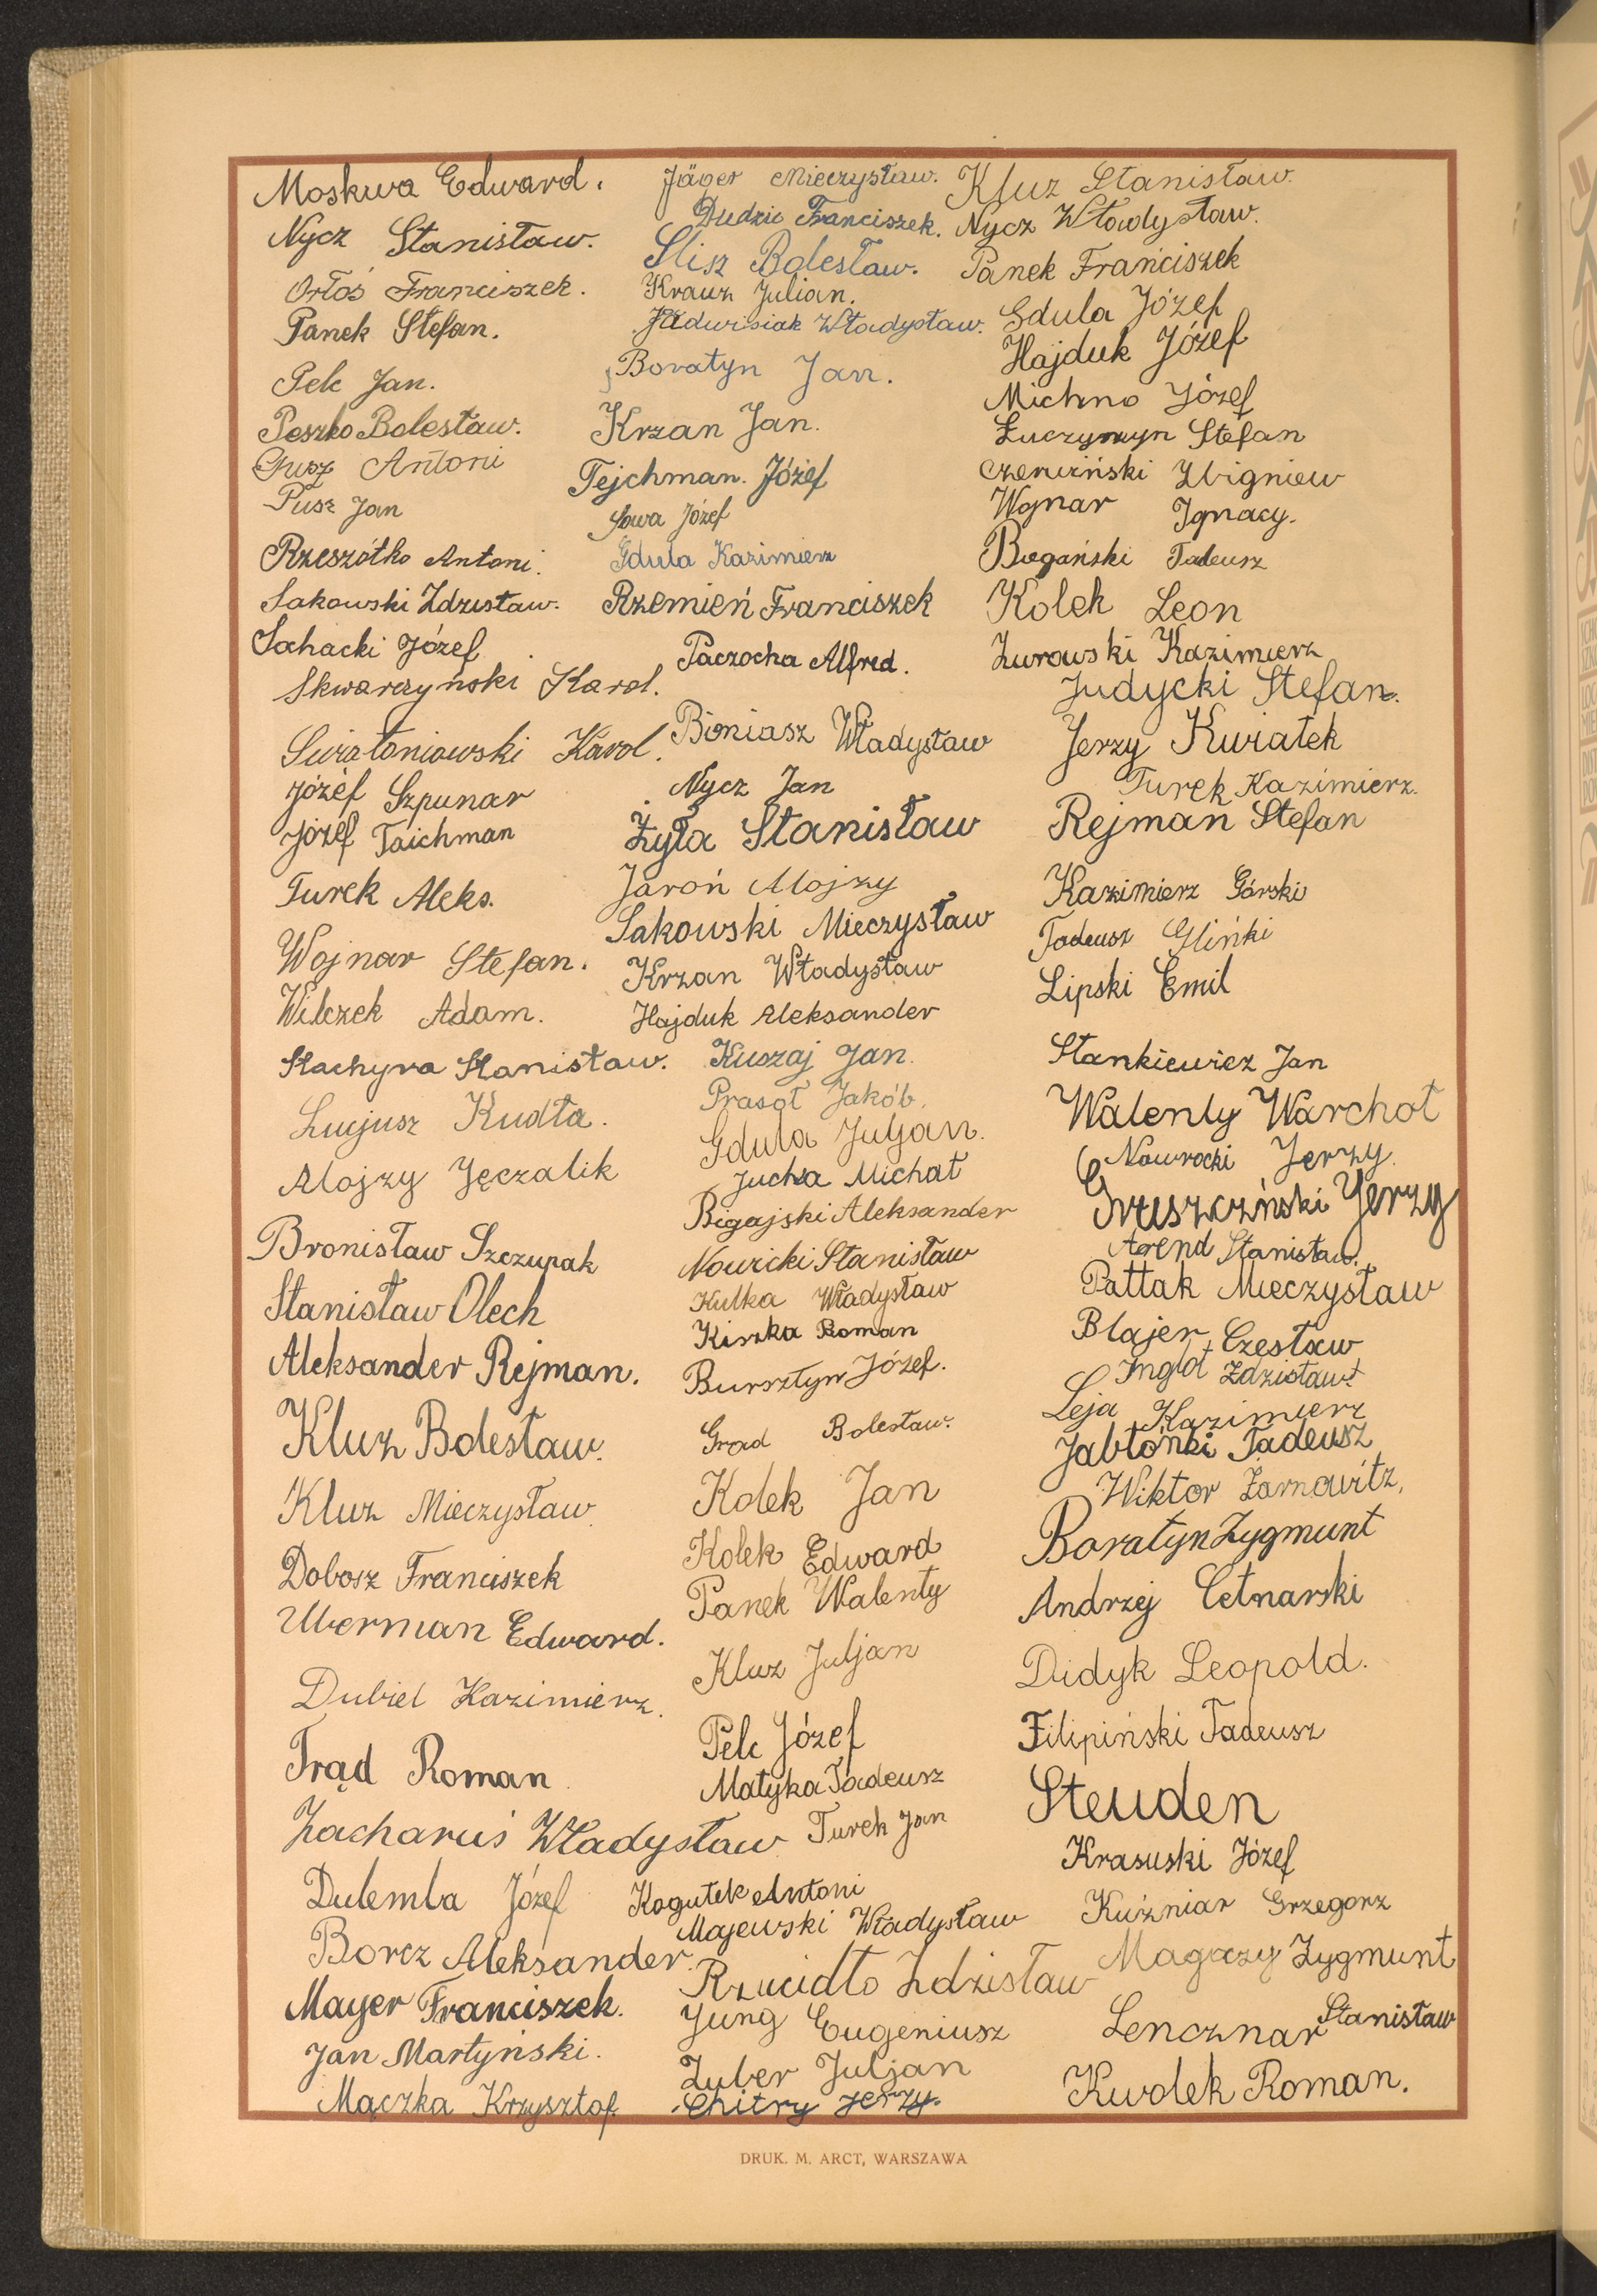 Moskwa Edward.
Nycz Stanisław.
Orłoś Franciszek.
Panek Stefan.
Pelc Jan.
Peszko Bolesław.
Antoni
Pusz Jan
Rzeszótko Antoni.
Sakowski Zdzisław.
Sochacki Józef
Skwarczyński Karol.
Swiatoniowski Karol.
Józef Szpunar
Józef Taichman
Turek Aleks.
Wojnar Stefan.
Wilczek Adam.
Stachyra Stanisław.
Lucjusz Kudła.
Alojzy Jęczalik
Bronisław Szczupak
Stanisław Olech
Aleksander Rejman.
Kluz Bolesław.
Kluz Mieczysław.
Dobosz Franciszek
Uberman Edward.
Dubiel Kazimierz.
Trąd Roman
Zacharuś Władysław
Dulemba Józef
Borcz Aleksander.
Mayer Franciszek.
Jan Martyński.
Mączka Krzysztof.
Jäger Mieczysław.
Dudzic Franciszek.
Slisz Bolesław.
Krauz Julian.
Jadwisiak Władysław.
Boratyn Jan.
Krzan Jan.
Tejchman. Józef
Sowa Józef
Gdula Kazimierz
Rzemień Franciszek
Paczocha Alfred.
Boniasz Władysław
Nycz Jan
Żyła Stanisław
Jaroń Alojzy
Sakowski Mieczysław
Krzan Władysław
Hajduk Aleksander
Kuszaj Jan.
Prasoł Jakób.
Gdula Juljan.
Jucha Michał
Bigajski Aleksander
Nowicki Stanisław
Kulka Władysław
Kiszka Roman
Bursztyn Józef.
Grad Bolesław.
Kolek Jan
Kolek Edward
Panek Walenty
Kluz Juljan
Pelc Józef
Matyka Tadeusz
Turek Jan
Kogutek Antoni
Majewski Władysław
Rzucidło Zdzisław
Jung Eugeniusz
Zuber Juljan
Chitry Jerzy.
Kluz Stanisław.
Nycz Władysław.
Panek Franciszek
Gdula Józef
Hajduk Józef
Michno Józef
Łuczymyn Stefan
Czerwiński Zbigniew
Wojnar Ignacy.
Biegański Tadeusz
Kolek Leon
Żurowski Kazimierz
Judycki Stefan.
Jerzy Kwiatek
Turek Kazimierz.
Rejman Stefan
Kazimierz Górski
Tadeusz Gliński
Lipski Emil
Stankiewicz Jan
Walenty Warchoł
Nawrocki Jerzy.
Gruszczński Jerzy
Arend Stanisław.
Pattak Mieczysław
Blajer Czesław
Inglot Zdzisław
Leja Kazimierz
Jabłoński Tadeusz
Wiktor Żarnowitz,
Boratyn Zygmunt
Andrzej Cetnarski
Didyk Leopold.
Filipiński Tadeusz
Steuden
Krasuski Józef
Kuźniar Grzegorz
Magoczy Zygmunt
Lencznar Stanisław
Kwolek Roman.
DRUK. M. ARCT, WARSZAWA